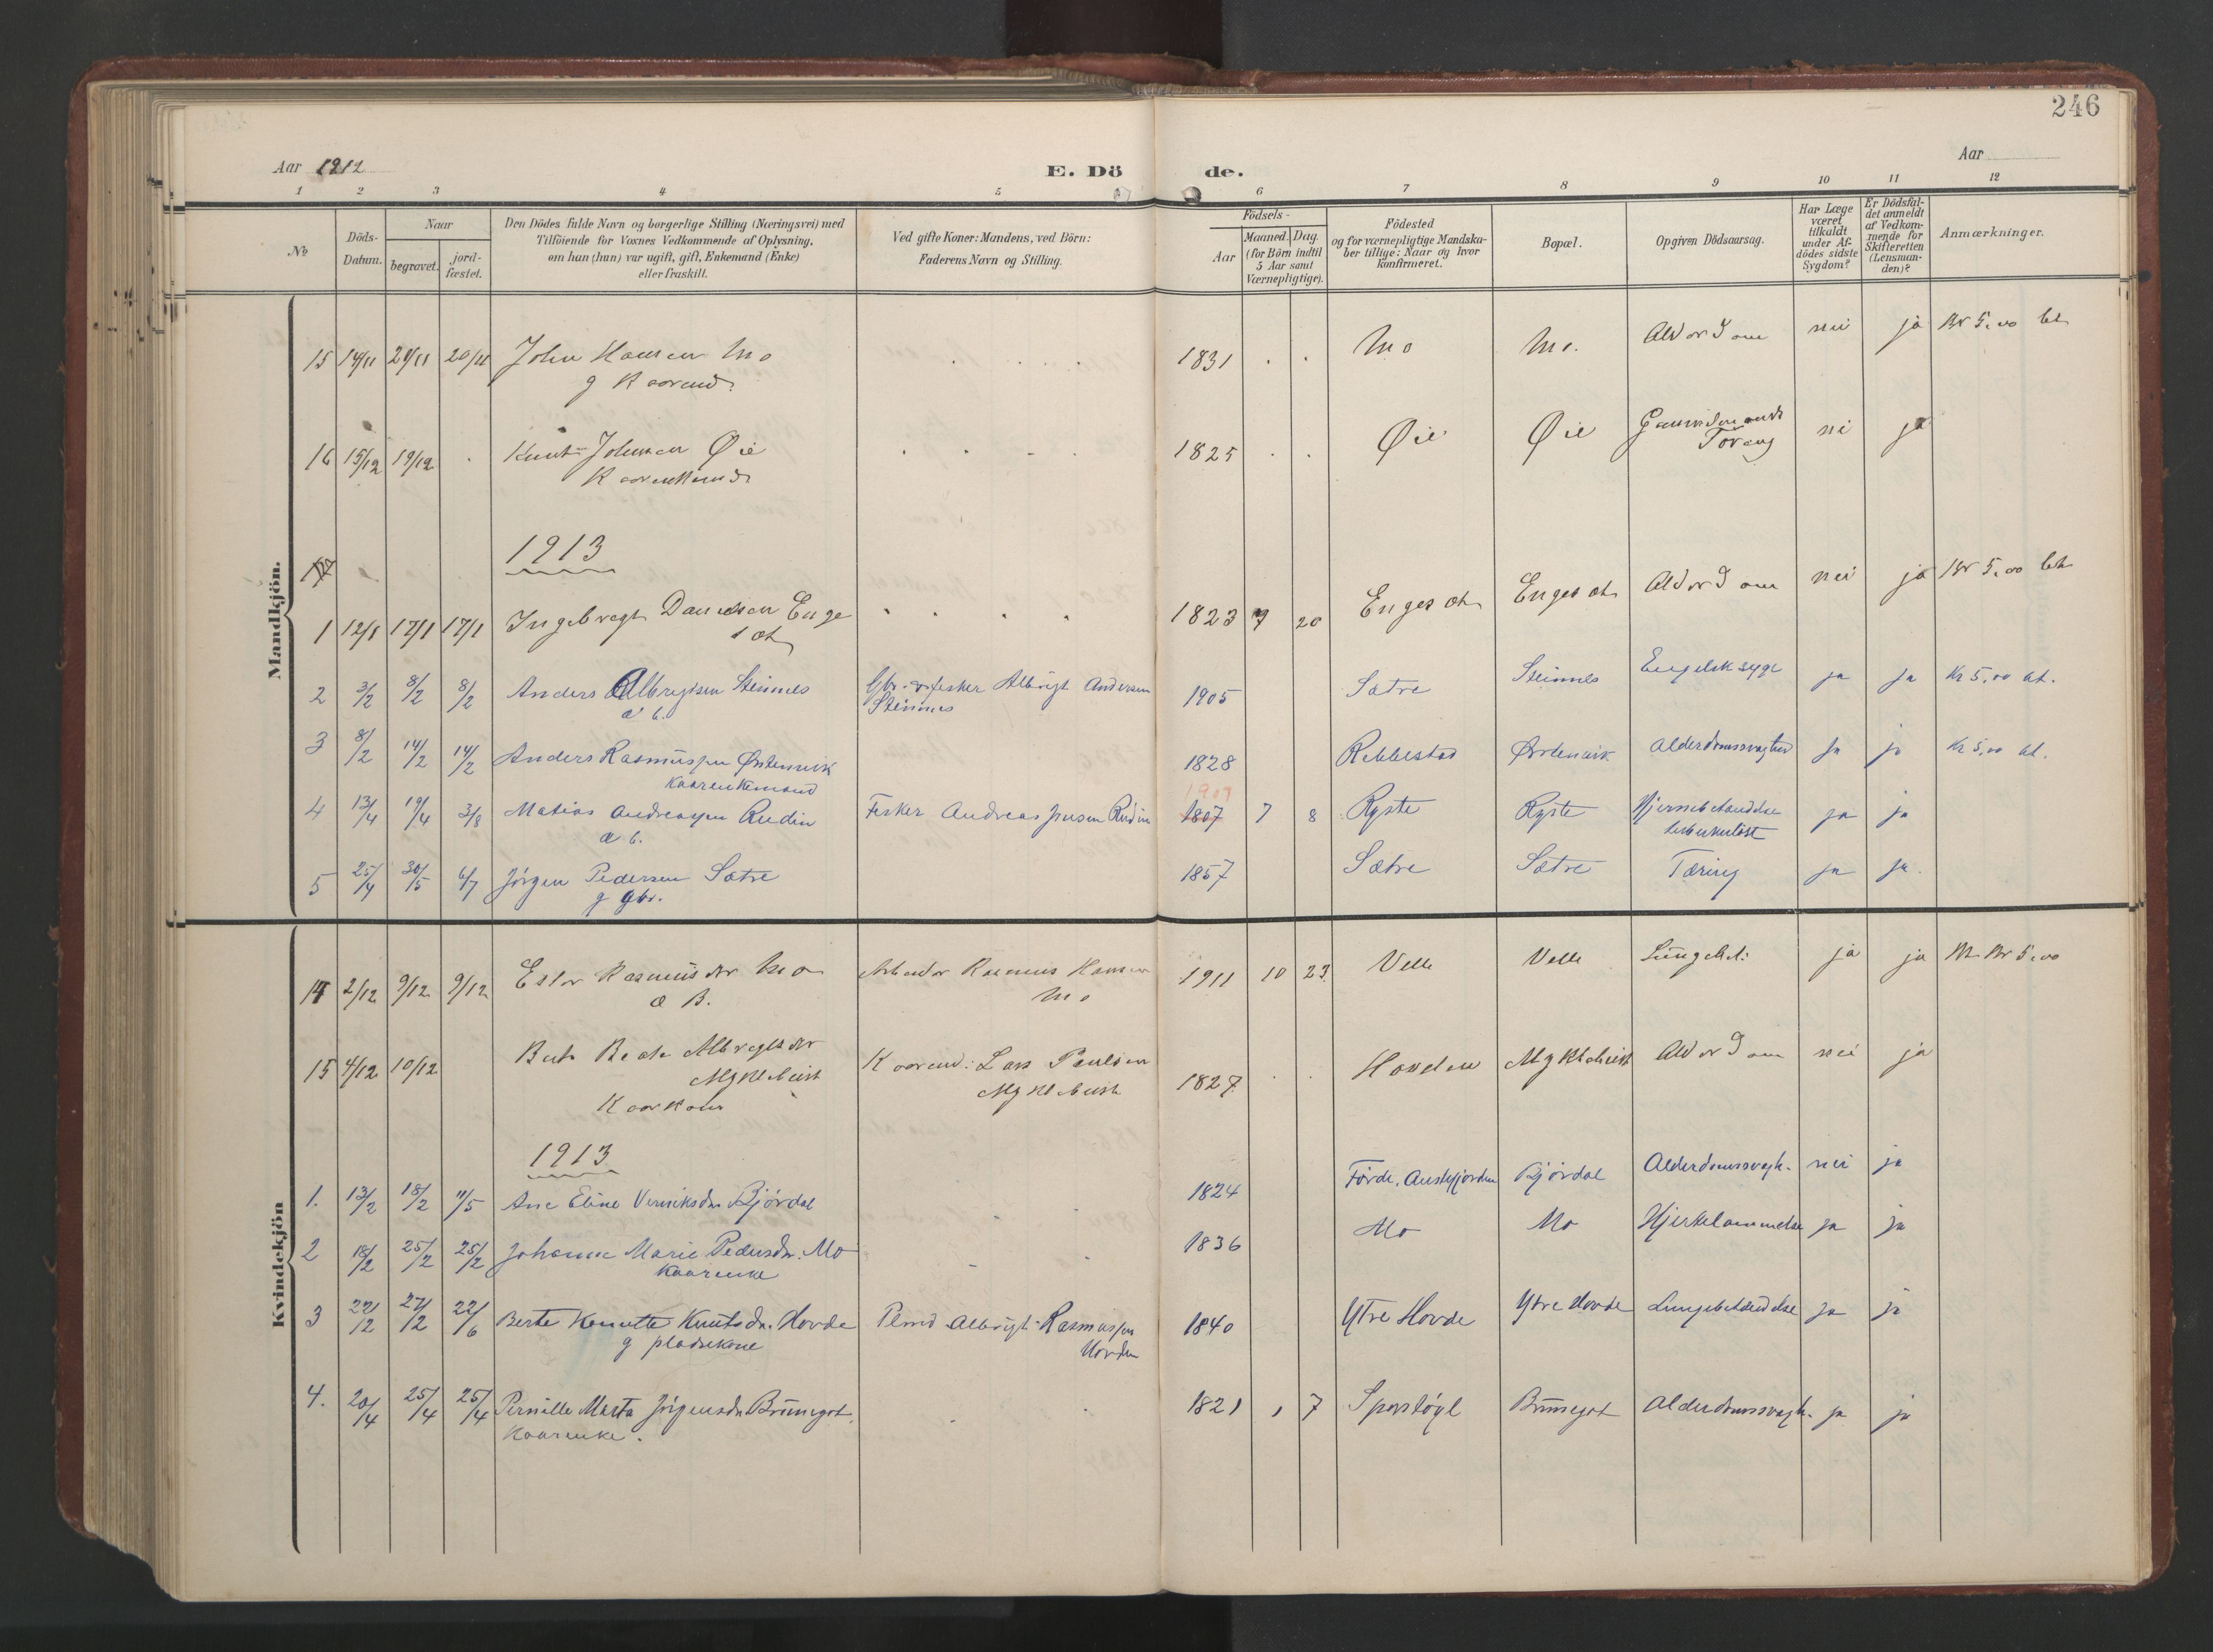 246
Aar 1912
E. Dö
de.
Aar
1 2 3 4 5 6 7 8 9 10 11 12
No
Döds-Datum.
Naar
begravet.
jord-fæstet.
Den Dödes fulde Navn og borgerlige Stilling (Næringsvei) med
Tilföiende for Voxnes Vedkommende af Oplysning,
om han (hun) var ugift, gift, Enkemand (Enke)
eller fraskilt.
Ved gifte Koner: Mandens, ved Börn:
Faderens Navn og Stilling.
Födsels-
Aar
Maaned. Dag.
(for Börn indtil
5 Aar samt
Værnepligtige).
Födested
og for værnepligtige Mandska-
ber tillige: Naar og hvor
konfirmeret.
Bopæl.
Opgiven Dödsaarsag.
Har Læge
været
tilkaldt
under Af-
dödes sidste
Sygdom?
Er Dödsfal-
det anmeldt
af Vedkom-
mende for
Skifteretten
(Lensman-
den)?
Anmærkninger.
Mandkjön.
15 14/11 20/11 20/11 John Hansen Mo 1831 Mo Mo. Alderdom nei ja Kr 5,00 bet
g Kaarmd.
16 15/12 19/12 Knut Johnsen Øie 1825 Øie Øie nei ja
Kaarenkemd.
1913
1 12/1 17/1 17/1 Ingebregt Danielsen Enge 1823 7 20 Engeset Engeset Alderdom nei ja Kr 5,00 bet
set
2 3/2 8/2 8/2 Anders Albregtsen Steinnes Gbr. & fisker Albrigt Andersen 1905 Sætre Steinnes Engelsk syge ja ja Kr 5,00 bet.
æ b. Steinnes
3 8/2 14/2 14/2 Anders Rasmussen Ørstenvik 1828 Rebbestad Ørstenvik Alderdomssvaghed ja ja Kr 5,00 bet.
Kaarenkemand
4 13/4 19/4 3/8 Matias Andreassen Rudin Fisker Andreas Jensen Rudin 1807 1907 7 8 Ryste Ryste Hjernebetændelse ja ja
æ b. tuberkuløst
5 25/4 30/5 6/7 Jörgen Pedersen Sætre 1857 Sætre Sætre Tæring ja ja.
g gbr.
Kvindekjön
14 2/12 9/12 9/12 Ester Rasmusdtr Mo Arbeider Rasmus Hansen 1911 10 23 Velle Velle Lungebet: ja ja Kr 5,00
æ B. Mo
15 4/12 10/12 Berte Beate Albregtsdtr Kaarmd: Lars Paulsen 1827 Hovden Myklebust Alderdom nei ja
Myklebust Myklebust
Kaarkone
1913
1. 13/2 18/2 11/5 Ane Eline Björdal 1824 Förde, Austefjorden Björdal Alderdomssvagh. nei ja
2 18/2 25/2 25/2 Johanne Marie Pedersdtr. Mo 1836 Mo Mo Hjertelammelse ja ja
Kaarenke
3 22/2 27/2 22/6 Berte Knutte Knutsdtr. Hovde Plmd Albrigt Rasmussen 1840 Ytre Hovde Ytre Hovde Lungebetændelse ja ja
g pladsekone Hovden
4. 20/4 25/4 25/4 Pernille Marta Jörgensdtr Brunegot. 1821 1 7 Sporstöyl Brunegot Alderdomssvagh. ja ja
Kaarenke.